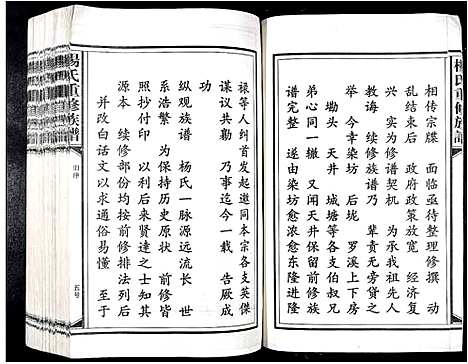 楊氏重修族譜
相传宗牒　面临亟待整理修撰　动
乱结束后　政府政策放宽　民族复
兴　实为修谱契机　为承祖先人
教诲　续修族谱乃　辈责无旁贷之
幸　今并定染坊　后垅　罗溪上下房
坳头　天井　城塘等各支伯叔兄
弟心同一辙　又闻天井保留前修族
谱完整　遂由染坊愈浓愈东隆进隆
禄等人纠首发起　邀同本宗各支英傑
谋议共勷　乃事迄今一载　告厥成
功
纵观族谱　杨氏一脉源远流长　世
系浩繁　为保持历史原状　前修皆
照抄付印　以利后来賢達之士知其
源本　续修部份均按前修排法列后
并改白话文以求通俗易懂　至于
楊氏重修族譜
旧序
五号